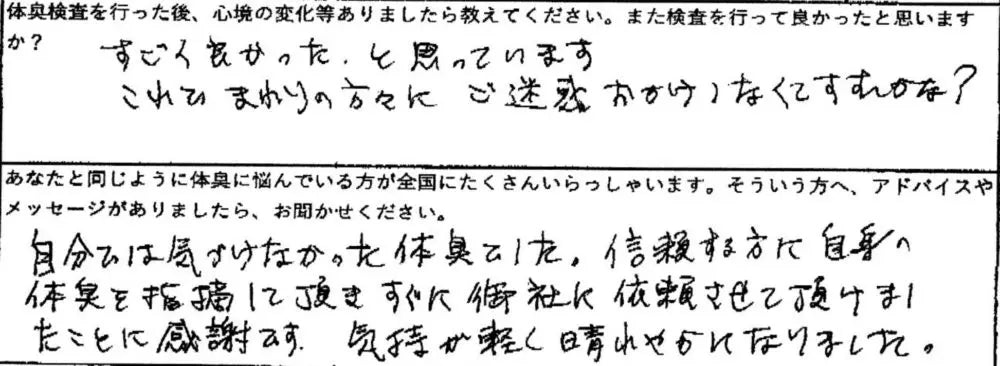 体臭検査を行った後、心境の変化等ありましたら教えてください。また検査を行って良かったと思います
か?
すごく良かった.と思っています
これで まわりの方々に ご迷惑 おかけしなくてすむかな?
あなたと同じように体臭に悩んでいる方が全国にたくさんいらっしゃいます。そういう方へ、アドバイスや
メッセージがありましたら、お聞かせください。
自分では気づけなかった体臭でした。信頼する方に自身の
体臭を指摘して頂きすぐに御社に依頼させて頂けまし
たことに感謝です. 気持が軽く晴れやかになりました。